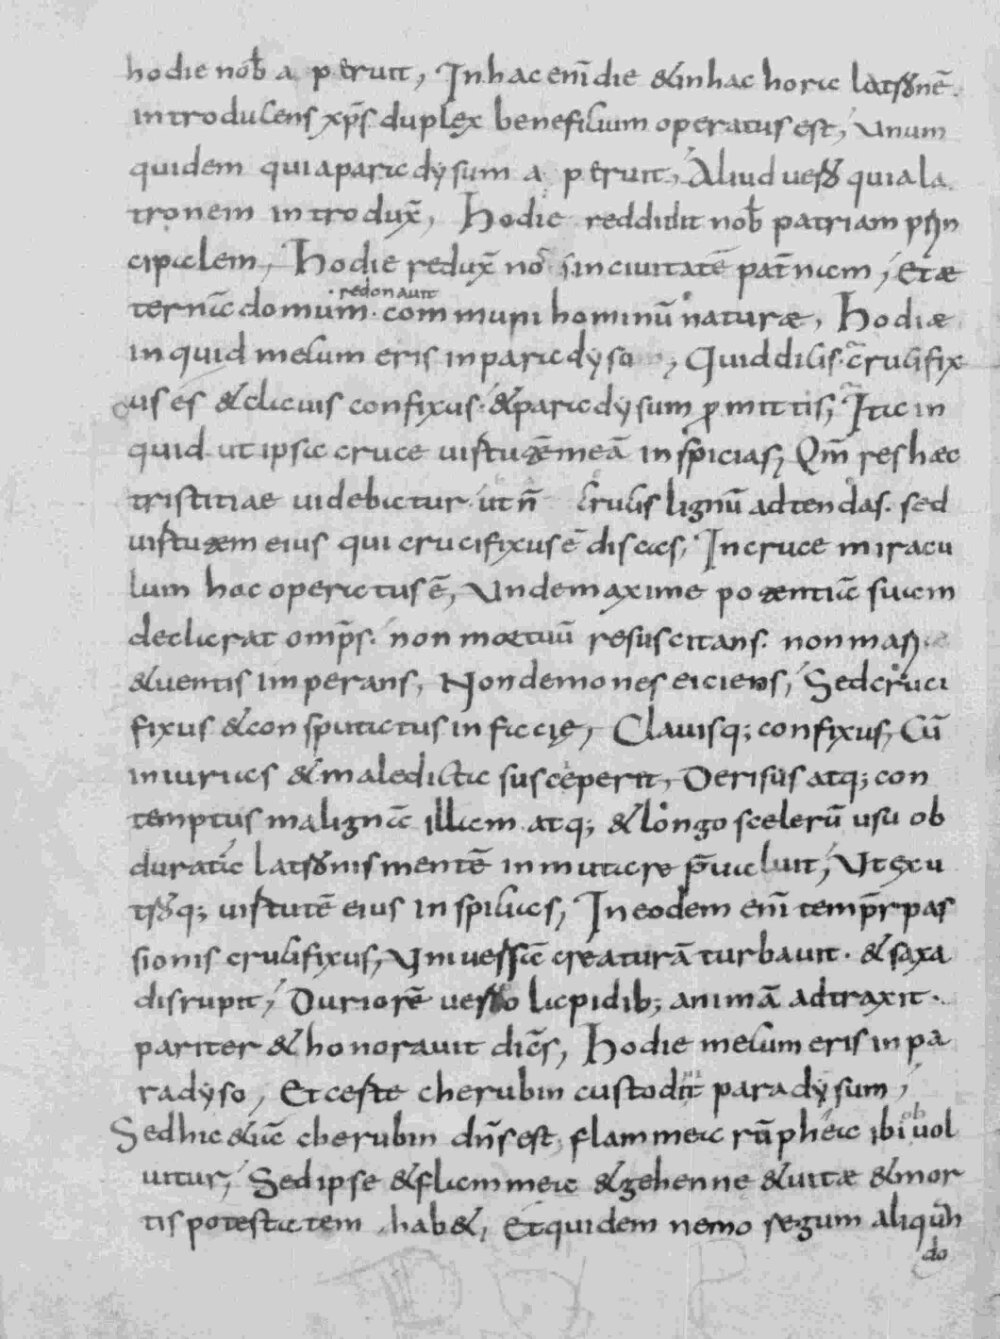 hodie nob̄ aperuit, In hac enī die & in hac hora latronē
introducens xp̄s duplex beneficium operatus est, Unum
quidem quia paradysum aperuit, Aliud uero quia la
tronem introdux̄, Hodie reddidit nob̄ patriam prin
cipalem, Hodie redux̄ nos in ciuitatē pat̄nam, Et æ
ternā domum · redonauit communi hominū naturæ, Hodiæ
inquid mecum eris in paradyso, Quid dicis crucifix
us es & clauis confixus · & paradysum ꝓmittis, Ita in
quid ut ipsa cruce uirtutē meā inspicias, Qm̄ res hæc
tristitiae uidebatur ut n̄ crucis lignū adtendas · sed
uirtutem eius qui crucifixus ē discas, In cruce miracu
lum hoc operatus ē, Unde maxime potentiā suam
declarat om̄ps · non mortuū resuscitans · non mari
& uentis imperans, Non demones eiciens, Sed cruci
fixus & consputatus in facię, Clauisq; confixus, Cū
iniurias & maledicta susceperit, Derisus atq; con
temptus malignā illam atq; & longo scelerū usu ob
duratā latronis mentē inmutare p̄ualuit, Ut ex u
troq; uirtutē eius inspicias, In eodem enī temp̄r pas
sionis crucifixus, Uniuersā creaturā turbauit · & saxa
disrupit, Duriorē uero lapidib; animā adtraxit ·
pariter & honorauit dic̄s, Hodie mecum eris in pa
radyso, Et certe cherubin custodīt paradysum,
Sed hic & iā cherubin dn̄s est, flammea rūpheie ibi uol
uitur, Sed ipse & flammeæ & gehenne & uitæ & mor
tis potestatem hab&, Et quidem nemo regum aliqūn
do